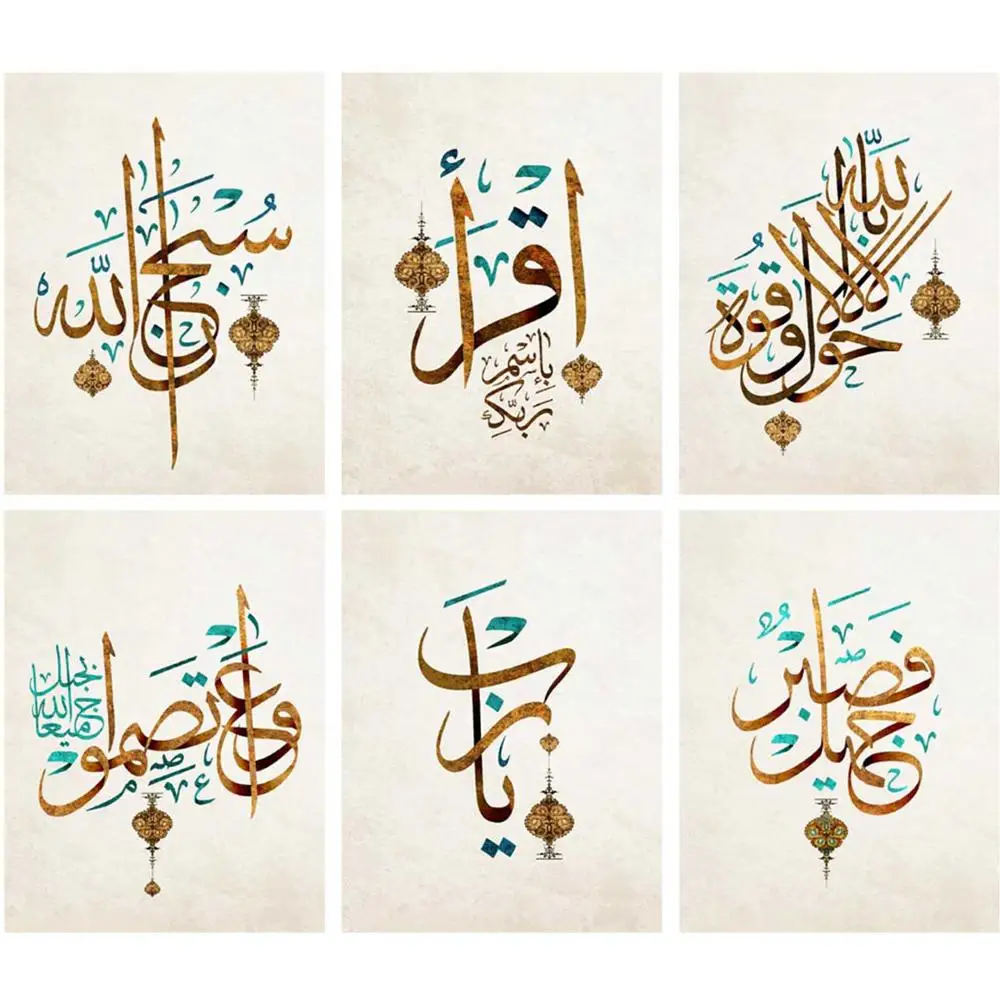 سبحان الله
اقرأ
بإسم
ربك
لا حول ولا قوة إلا بالله
واعتصموا
بحبل
الله
جميعا
يا رب
فصبر
جميل